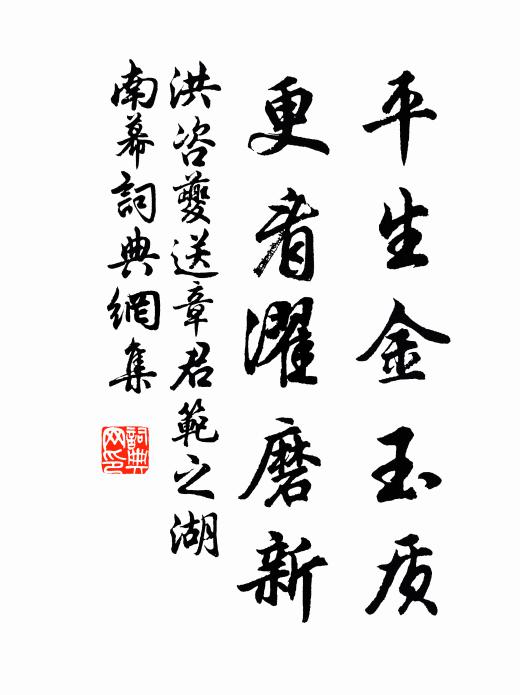 平生金玉质
更看濯磨新
洪咨夔送章君範之湖
南幕詞典網集
詞典网印